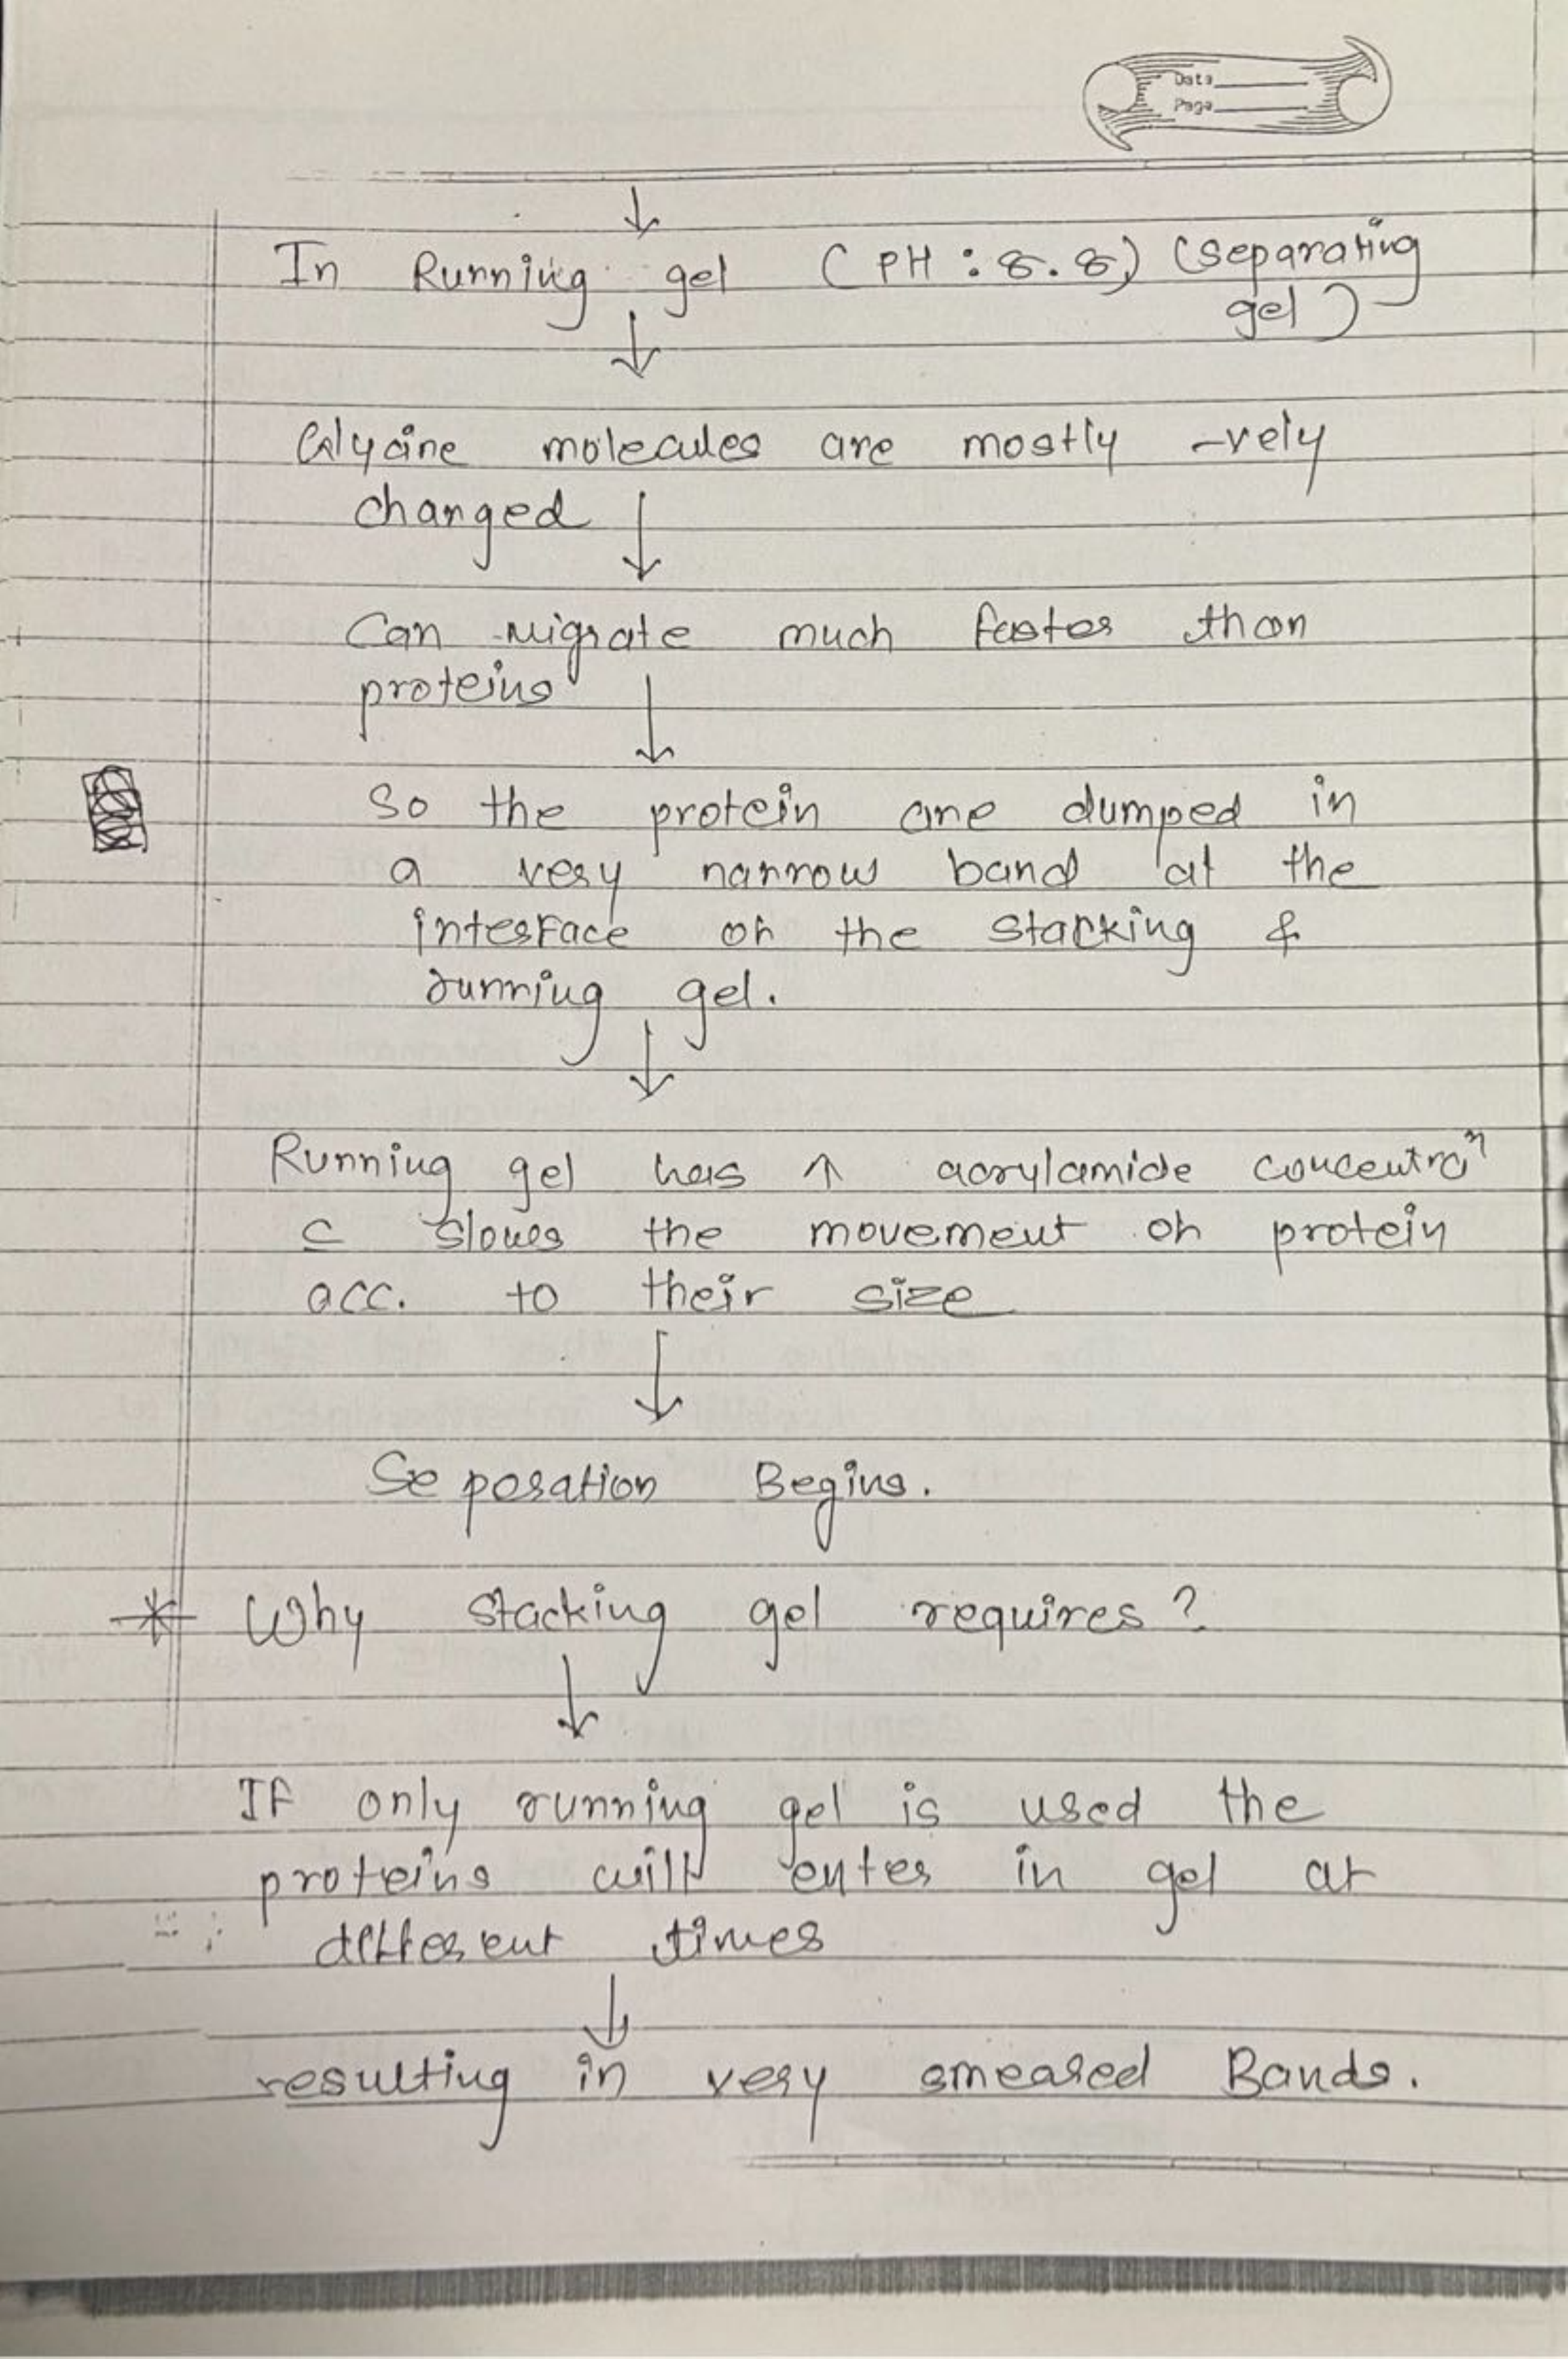 Date
Page
↓
In Running gel (PH : 8.8) (separating
gel)
↓
Glycine molecules are mostly -vely
changed ↓
Can migrate much faster than
proteins ↓
So the protein are dumped in
a very narrow band at the
interface of the stacking &
running gel.
↓
Running gel has ↑ acrylamide concentraⁿ
c slows the movement of protein
acc. to their size
↓
Seperation Begins.
* Why stacking gel requires?
↓
If only running gel is used the
proteins will enter in gel at
different times
↓
resulting in very smeared Bands.